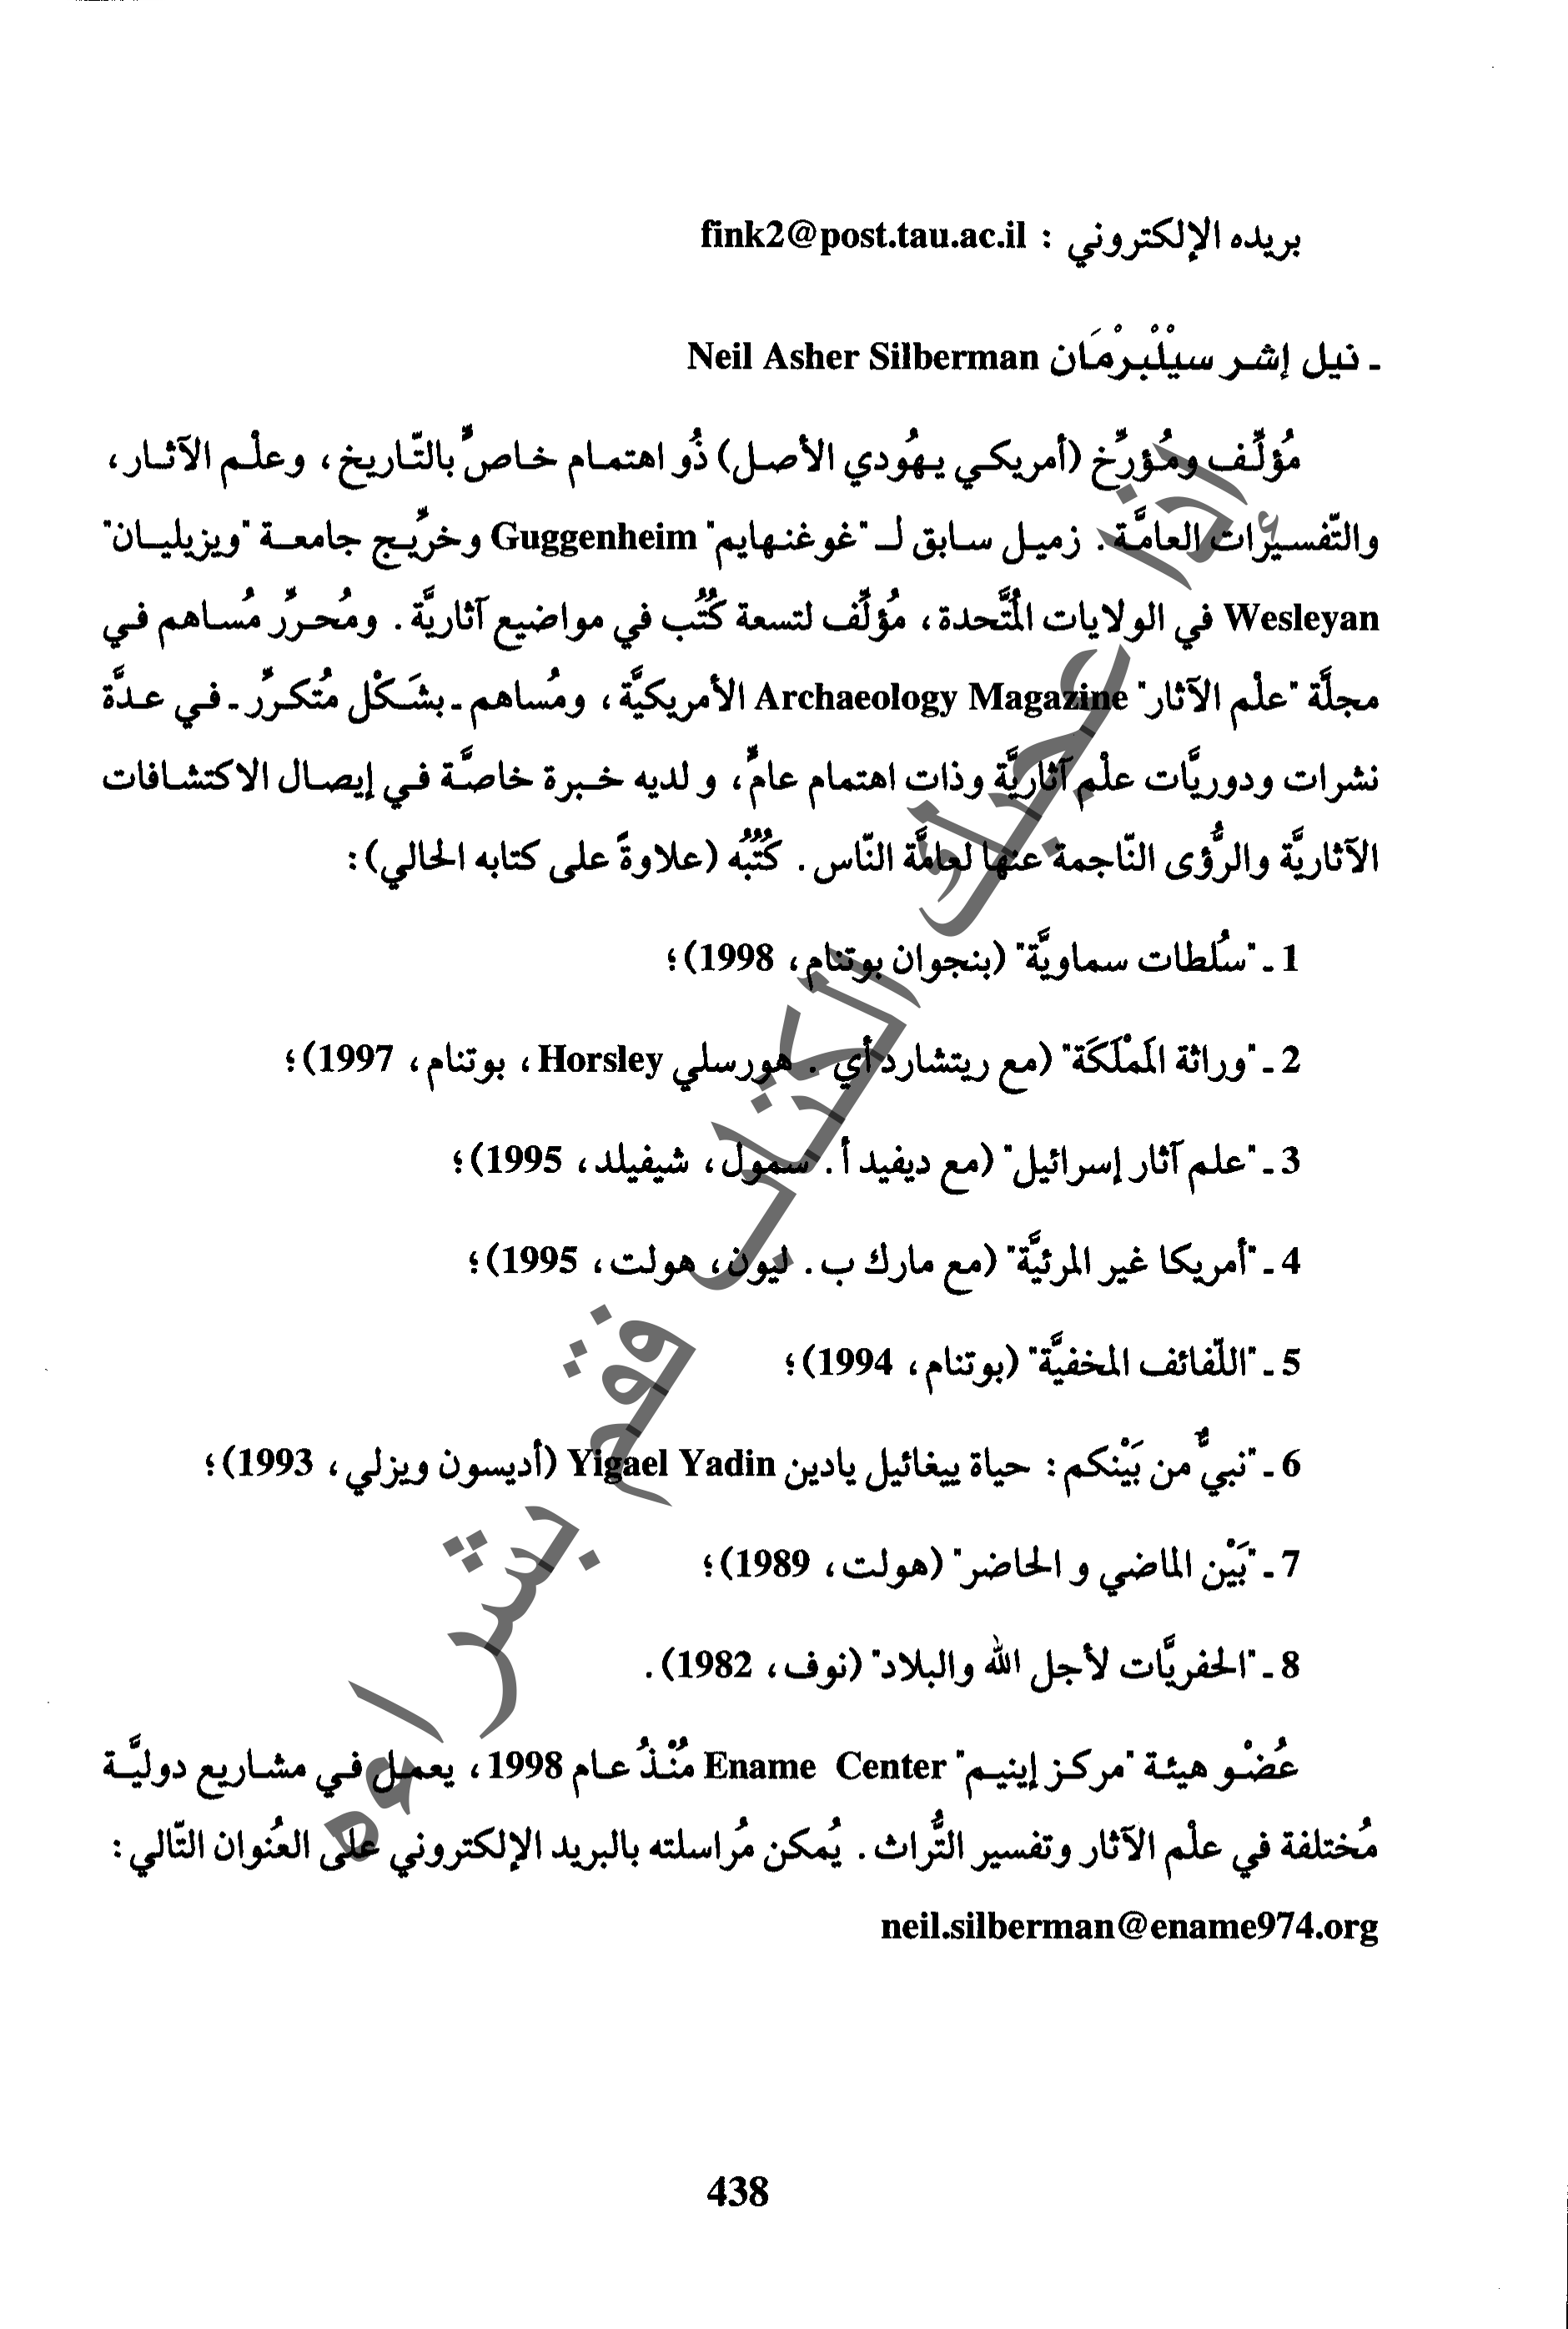 بريده الإلكتروني : fink2@post.tau.ac.il
ـ نيل إشر سيْلْبرْمَان Neil Asher Silberman
مُؤلِّف ومُؤرِّخ (أمريكي يهُودي الأصل) ذُو اهتمام خاصٍّ بالتّاريخ، وعلْم الآثار،
والتّفسيرات العامَّة. زميل سابق لـ "غوغنهايم" Guggenheim وخرِّيج جامعة "ويزيليان"
Wesleyan في الولايات المُتَّحدة، مُؤلِّف لتسعة كُتُب في مواضيع آثاريَّة. ومُحرِّر مُساهم في
مجلَّة "علْم الآثار" Archaeology Magazine الأمريكيَّة، ومُساهم ـ بشَكْل مُتكرِّر ـ في عدَّة
نشرات ودوريَّات علْم آثاريَّة وذات اهتمام عامٍّ، و لديه خبرة خاصَّة في إيصال الاكتشافات
الآثاريَّة والرُّؤى النّاجمة عنها لعامَّة النّاس. كُتُبُه (علاوةً على كتابه الحالي):
1 ـ "سُلطات سماويَّة" (بنجوان بوتنام، 1998)؛
2 ـ "وراثة المَمْلَكَة" (مع ريتشارد أي. هورسلي Horsley، بوتنام، 1997)؛
3 ـ "علم آثار إسرائيل" (مع ديفيد أ. سمول، شيفيلد، 1995)؛
4 ـ "أمريكا غير المرئيَّة" (مع مارك ب. ليون، هولت، 1995)؛
5 ـ "اللّفائف المخفيَّة" (بوتنام، 1994)؛
6 ـ "نبيٌّ من بَيْنكم: حياة ييغائيل يادين Yigael Yadin (أديسون ويزلي، 1993)؛
7 ـ "بَيْن الماضي و الحاضر" (هولت، 1989)؛
8 ـ "الحفريَّات لأجل الله والبلاد" (نوف، 1982).
عُضْو هيئة "مركز إينيم" Ename Center مُنْذُ عام 1998، يعمل في مشاريع دوليَّة
مُختلفة في علْم الآثار وتفسير التُّراث. يُمكن مُراسلته بالبريد الإلكتروني على العُنوان التّالي:
neil.silberman@ename974.org
438
إذا أعجبك الكتاب فقم بشراءه